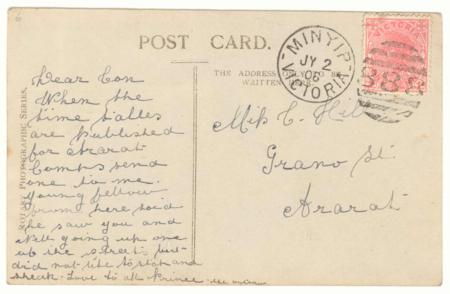 POST CARD.
THE ADDRESS ONLY TO BE
WRITTEN
MINYIP
JY 2
06
VICTORIA
VICTORIA
888
ROTARY PHOTOGRAPHIC SERIES.
Dear Con
When the
time tables
are published
for Ararat
Comps send
one to me.
Young fellow
from here said
he saw you and
Nell going up one
up the street but
did not like to stop and
speak. Love to all Prince
Miss C. Hill
Grano St.
Ararat